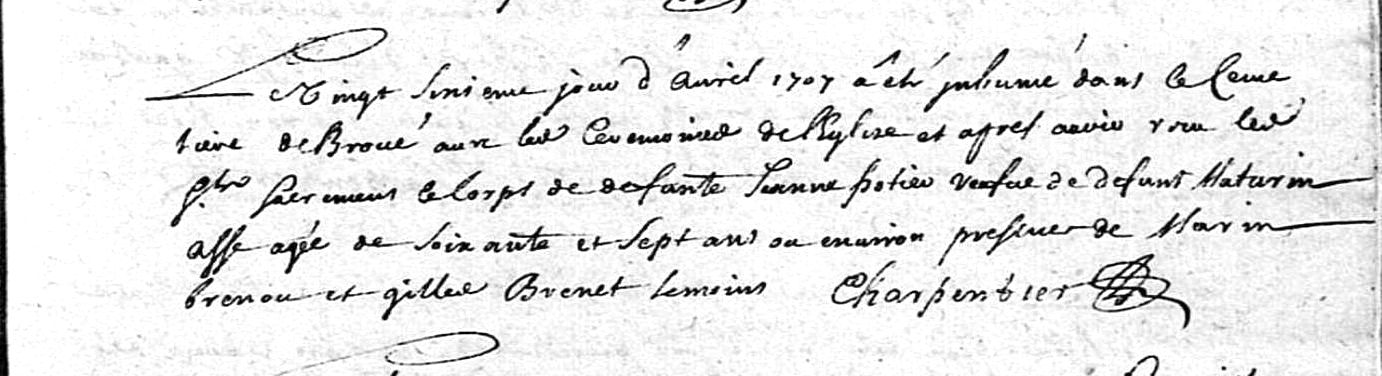 Le Vingt sixieme jour d'Avril 1707 a eté jnhumé dans le Cime
tiere de Broué avec les Ceremonies de l'Eglise et apres avoir recu les
Sts Sacremens le Corps de defunte Jeanne potier veufue de defunt Maturin
asse agée de soixante et sept ans ou environ presence de Marin
brenou et gilles Brenet temoins Charpentier